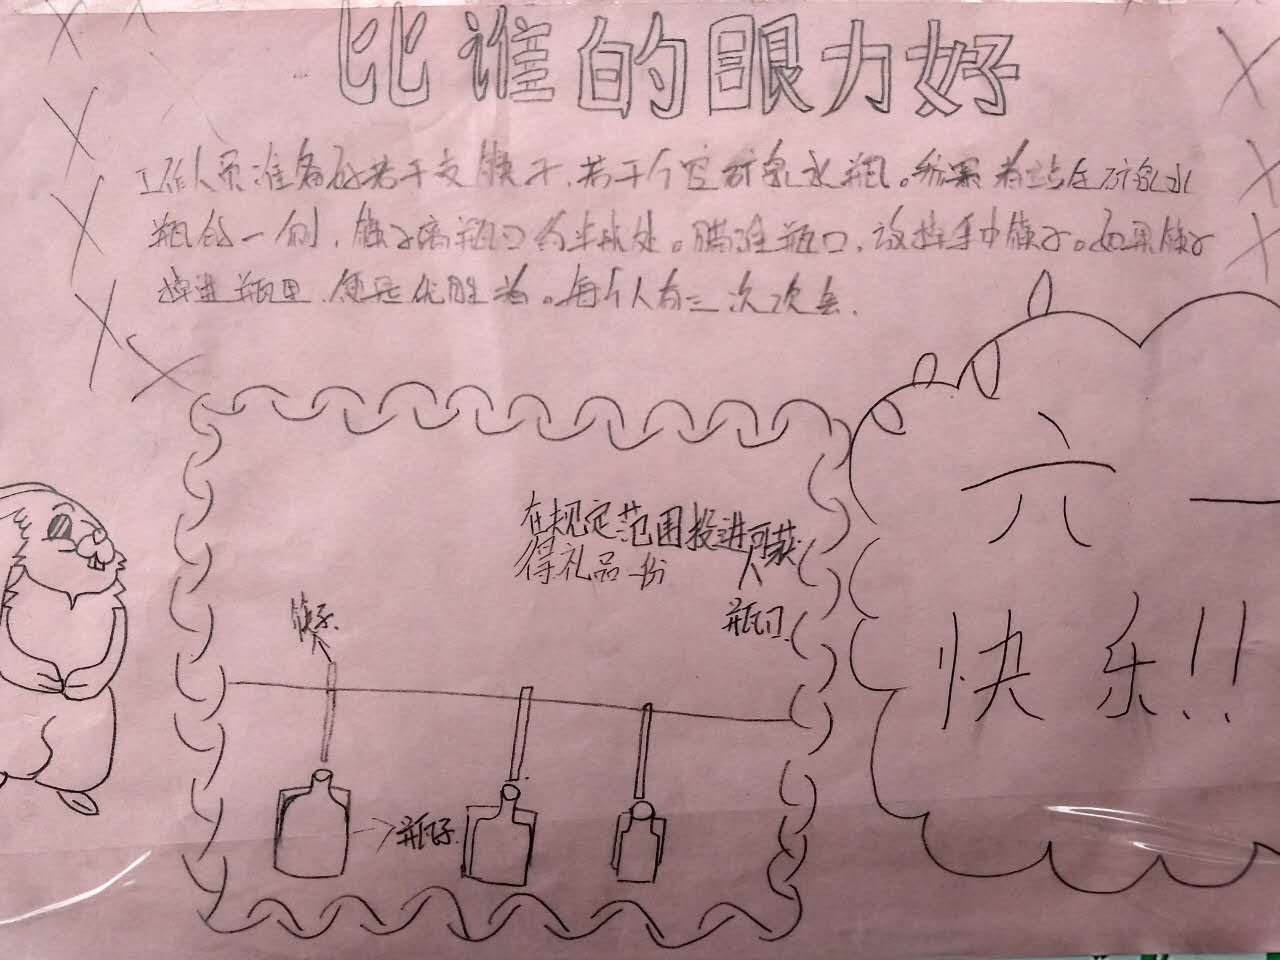 比谁的眼力好
工作人员准备好若干支筷子,若干个空矿泉水瓶。参赛者站在矿泉水
瓶的一侧,筷子离瓶口约半米处。瞄准瓶口,放掉手中筷子。如果筷子
掉进瓶里,便是优胜者。每个人有三次机会.
在规定范围投进可获
得礼品一份 人
瓶口
筷子
瓶子
六一
快乐!!